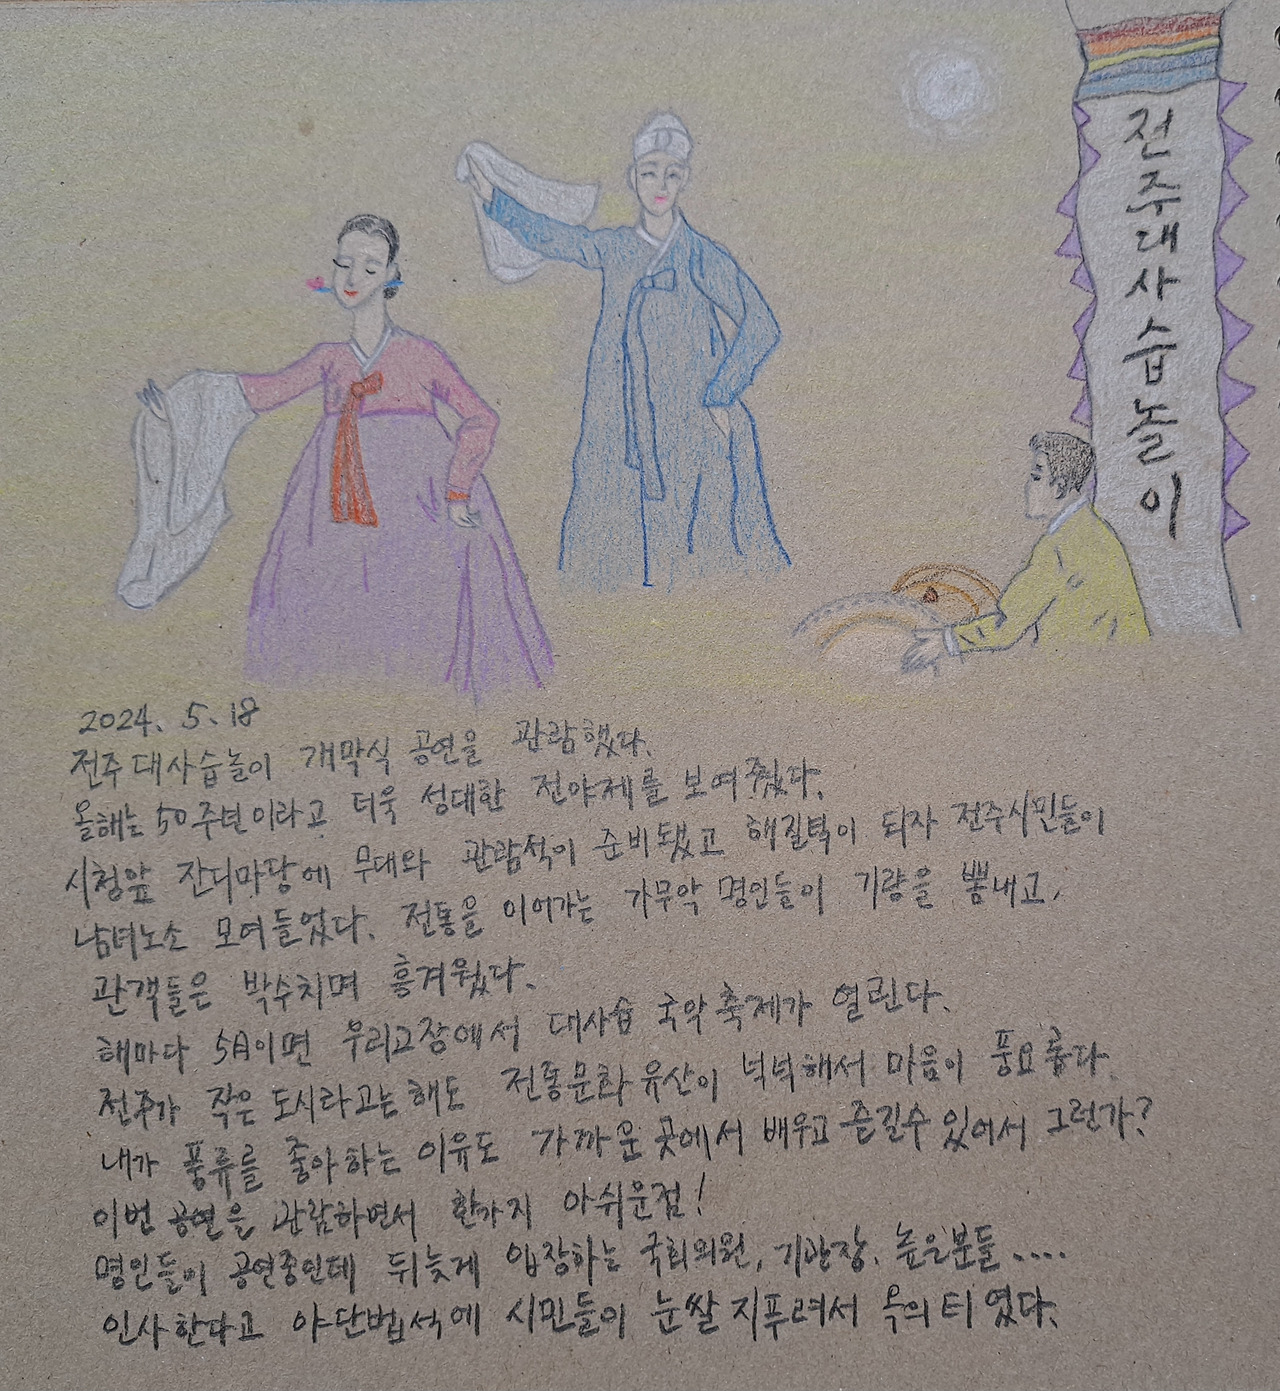 전주대사습놀이
2024. 5. 18
전주대사습놀이 개막식 공연을 관람했다.
올해는 50주년이라고 더욱 성대한 전야제를 보여줬다.
시청앞 잔디마당에 무대와 관람석이 준비됐고 해질턱이 되자 전주시민들이
남녀노소 모여들었다. 전통을 이어가는 가무악 명인들이 기량을 뽐내고,
관객들은 박수치며 흥겨웠다.
해마다 5月이면 우리고장에서 대사습 국악축제가 열린다.
전주가 작은 도시라고는해도 전통문화유산이 넉넉해서 마음이 풍요롭다.
내가 풍류를 좋아하는 이유도 가까운 곳에서 배우고 즐길수 있어서 그런가?
이번 공연을 관람하면서 한가지 아쉬운점!
명인들이 공연중인데 뒤늦게 입장하는 국회의원, 기관장. 높은분들....
인사한다고 야단법석에 시민들이 눈쌀지푸려서 옥의 티였다.